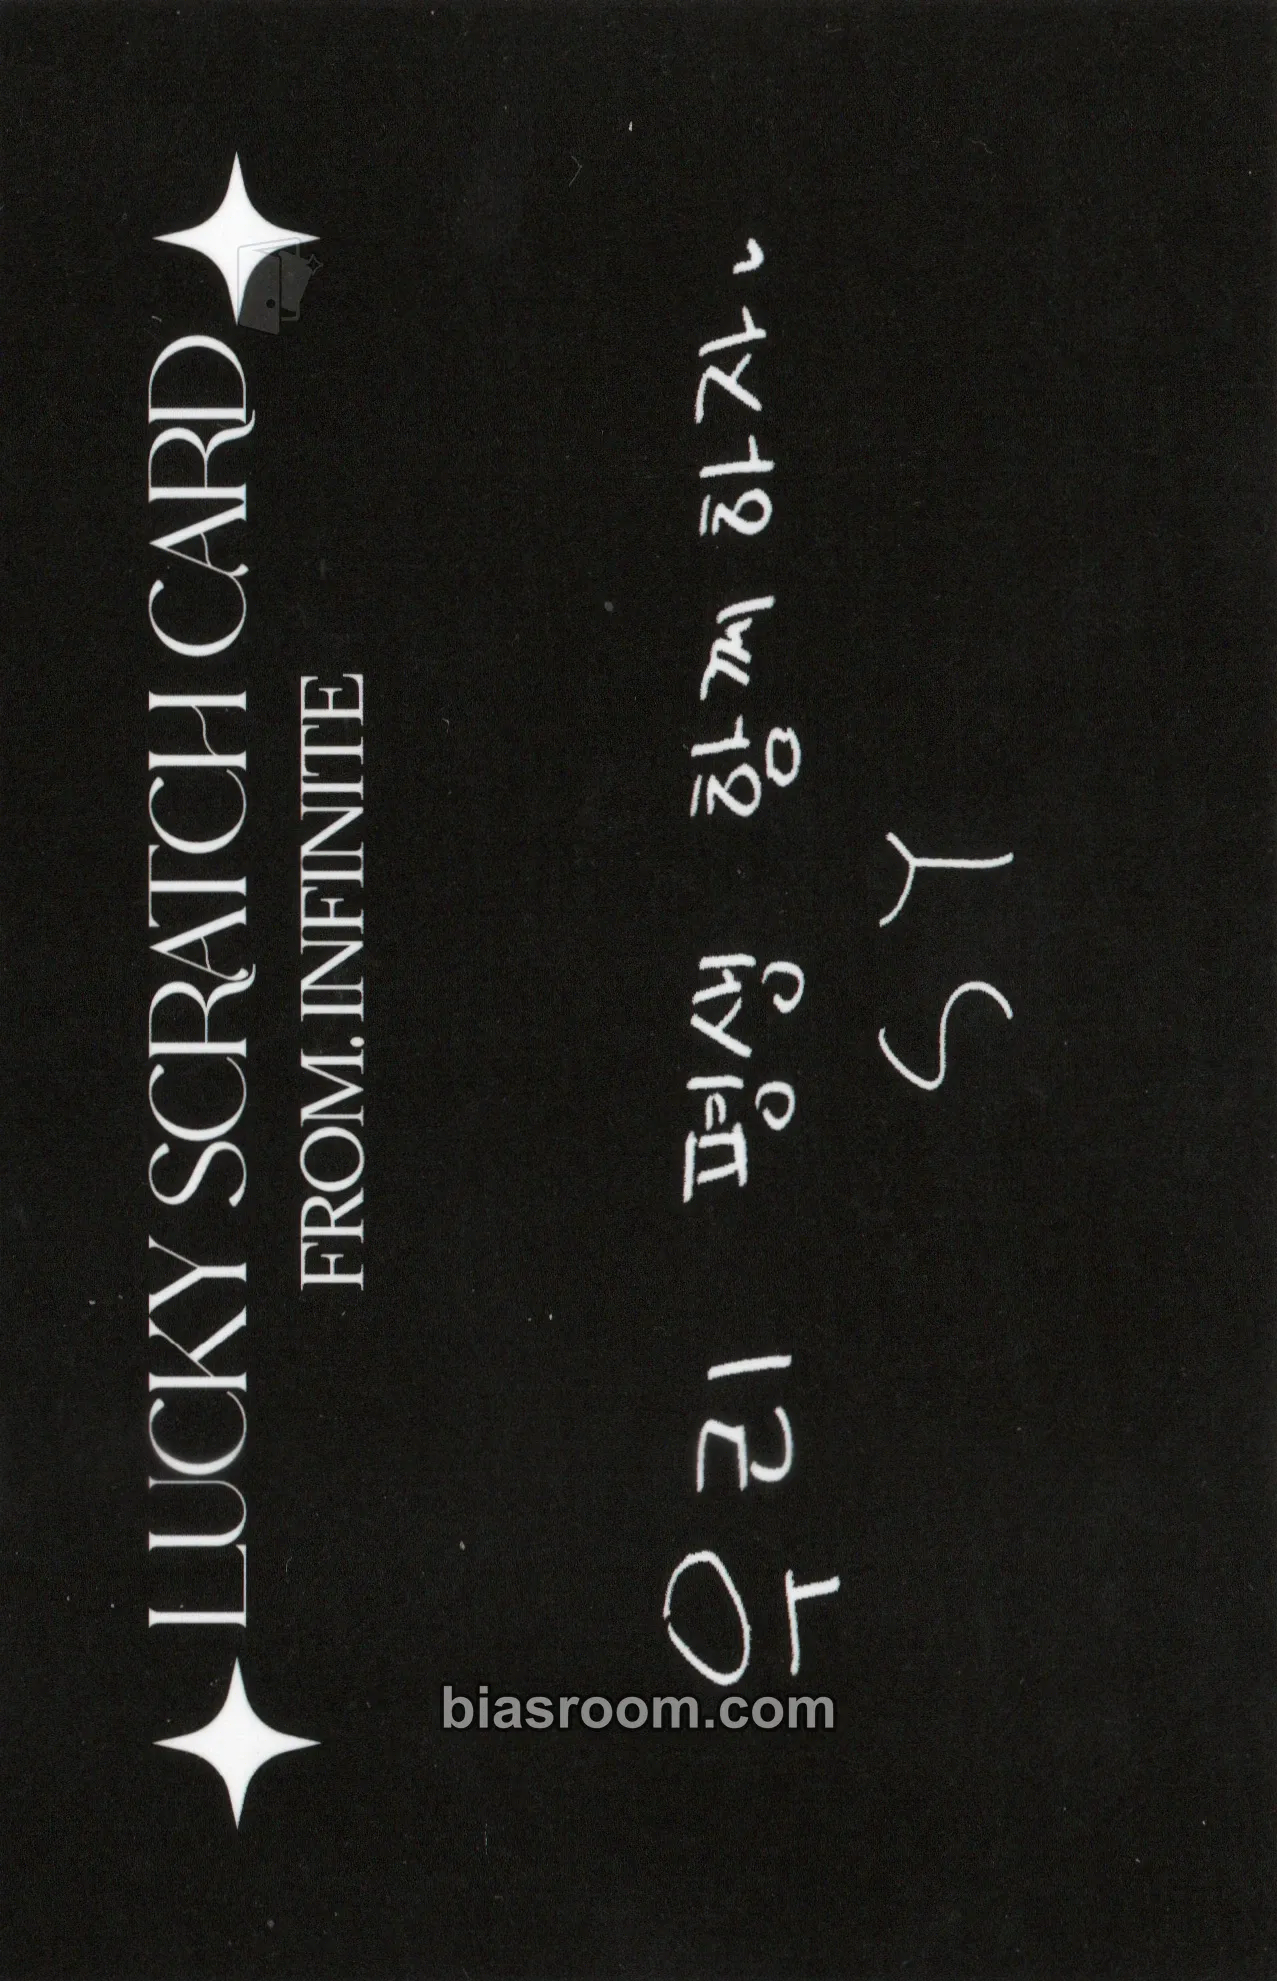 LUCKY SCRATCH CARD
FROM. INFINITE
우리 평생 함께 하자
SY
biasroom.com